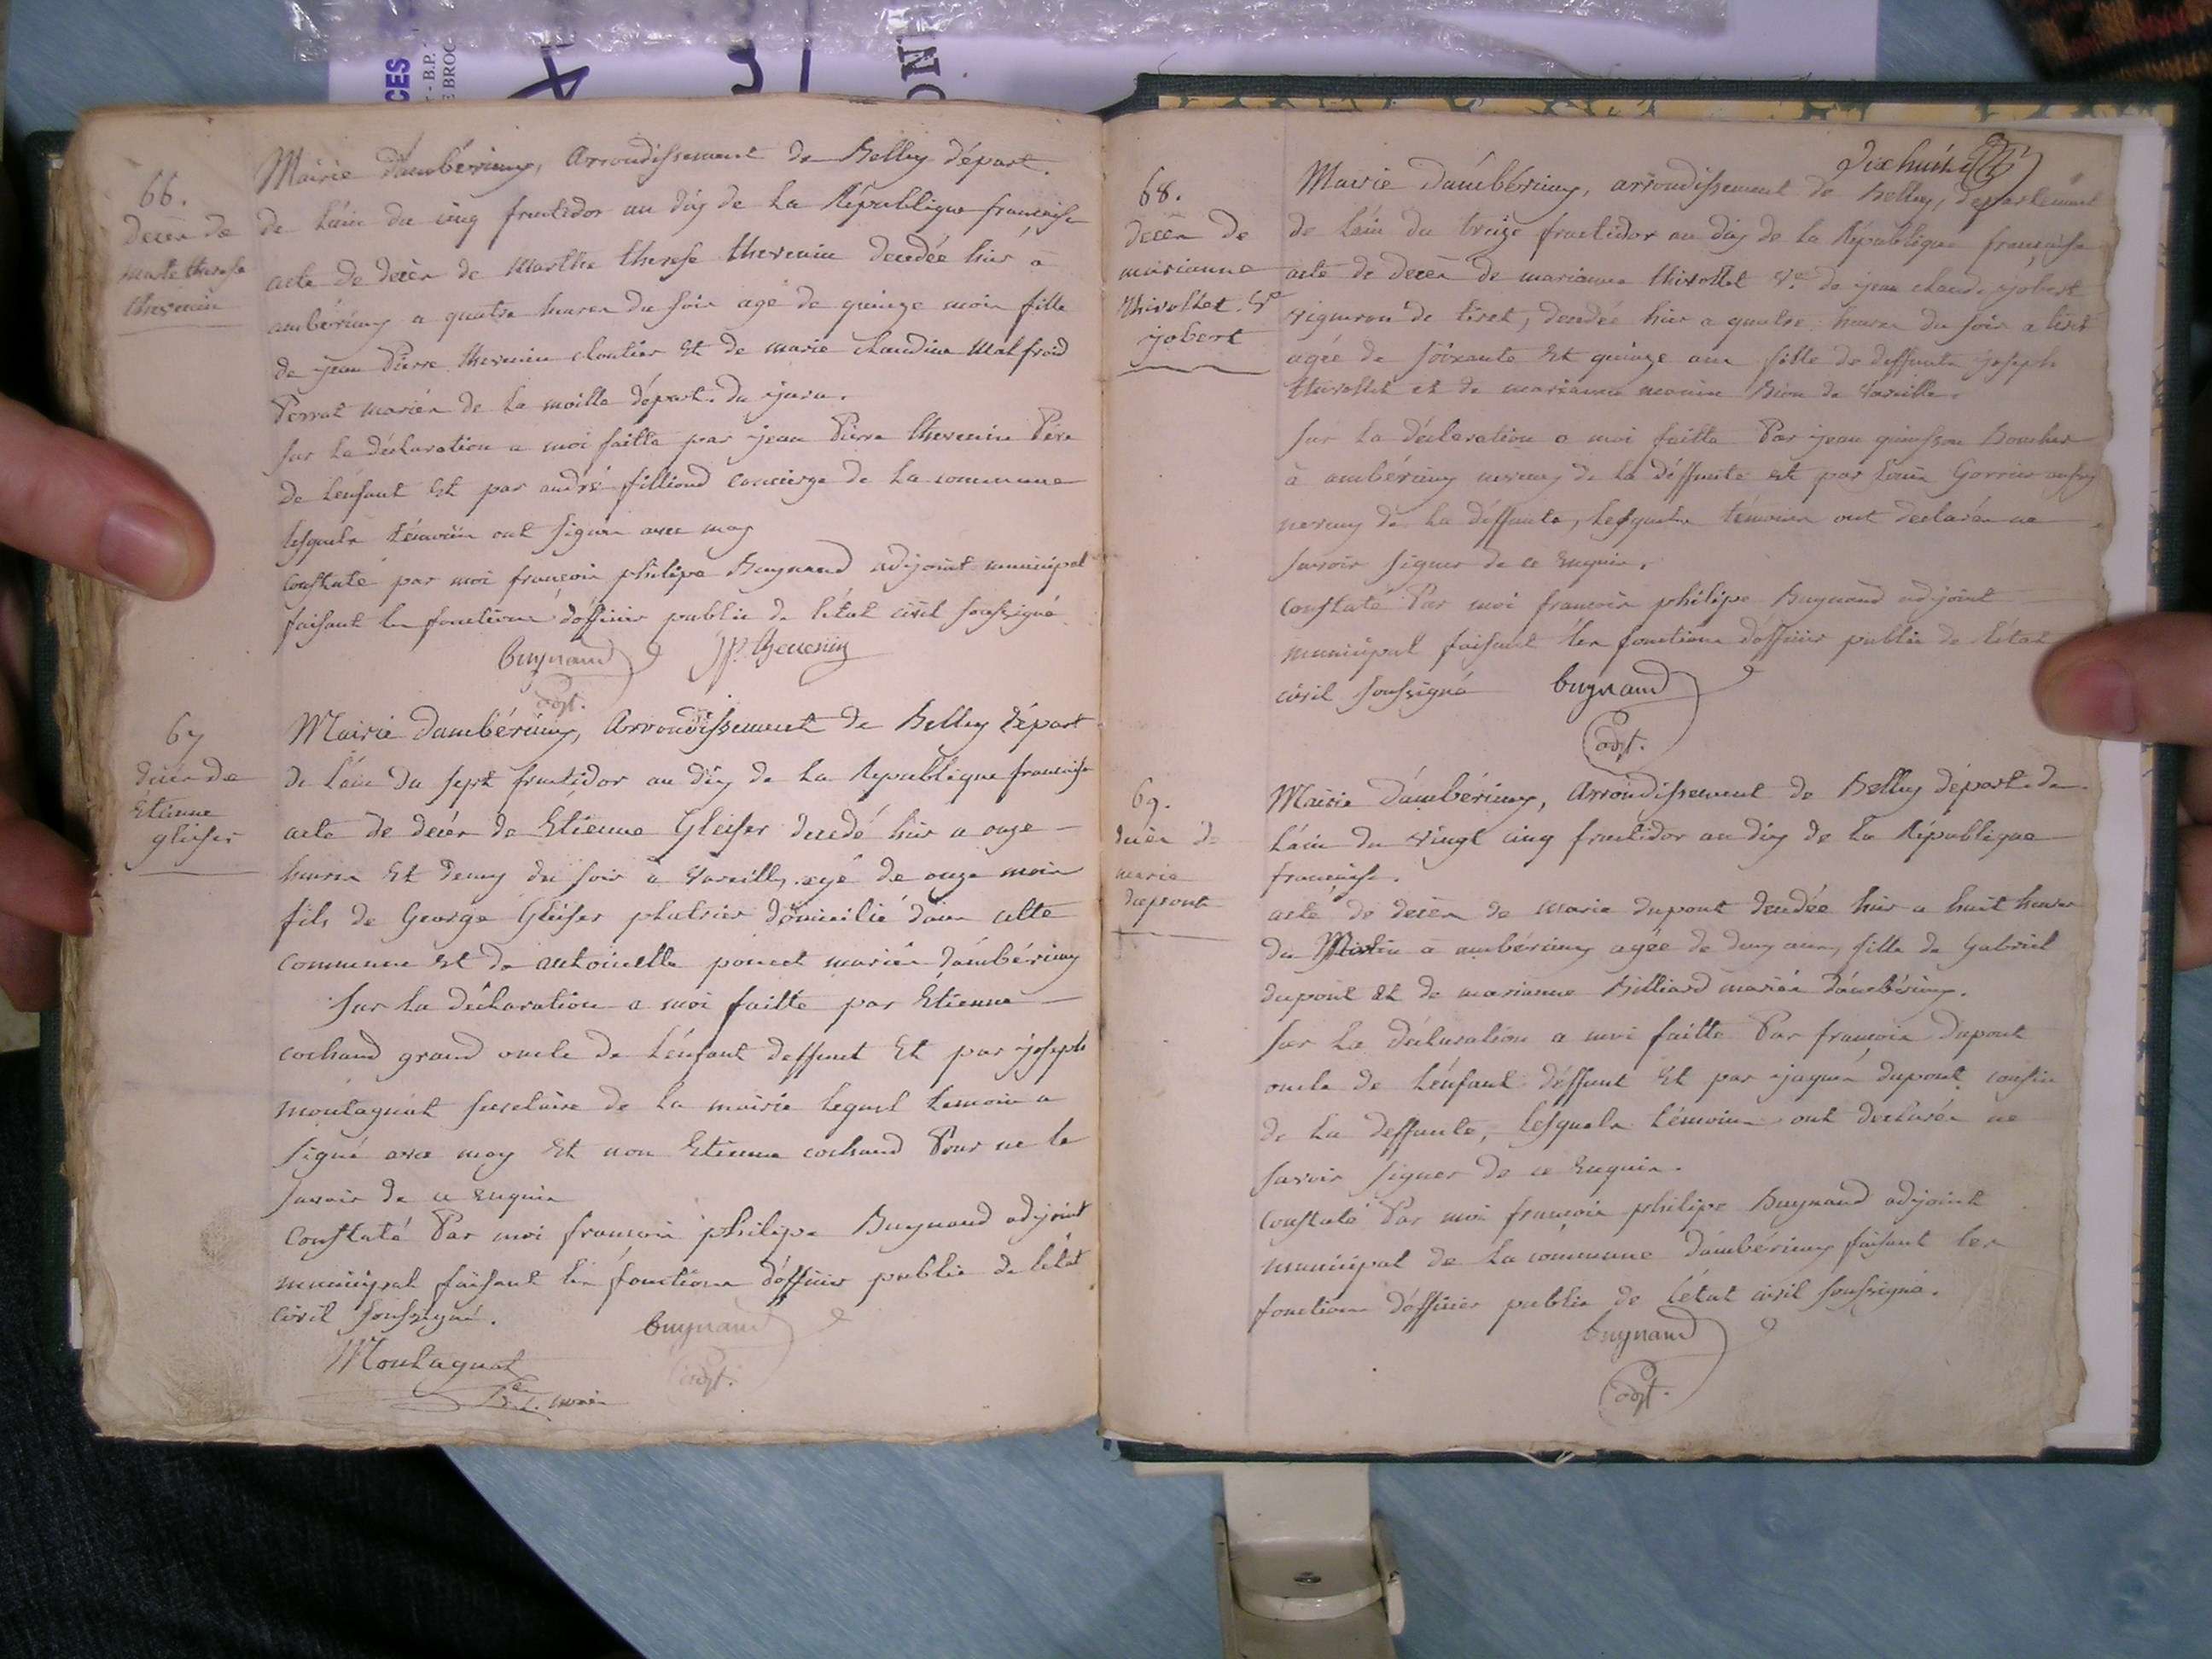 CES
- B.P.
E BROC
ON
66.
Decèr de
marte therese
thevenin
Mairie d'ambérieux, Arrondissement de Belley départ.
de l'ain du cinq fructidor an dix de La République francaise
acte de decèr de Marthe therese thevenin decedée hier à
ambérieux a quatre heures du soir agé de quinze moir fille
de jean Pierre thevenin cloutier Et de marie claudine Malfroid
Perrat mariér de la moille départ. du jura.
sur la déclaration a moi faitte par jean Pierre thevenin Père
de L'enfant Et par andré filliond concierge de La commune
lesquelr témoin ont signér avec moy
Constaté par moi françoir philipe Buynand adjoint municipal
faisant les fonctions d'officier public de l'état civil soussigné
buynand JP. thevenin
adjt.
67
decèr de
Etienne
gleifer
Mairie d'ambérieux, Arrondissement de Belley départ
de L'ain du sept fructidor an dix de La République francaise
acte de decèr de Etienne Gleifer decedé hier a onze
heures Et demy du soir à Vareilles agé de onze moir
fils de George Gleifer platrier domicilié danr cette
commune Et de antoinette poncet mariér d'ambérieux
Sur La déclaration a moi faitte par Etienne
cochand grand oncle de L'enfant deffunt Et par joseph
montagnat secretaire de la mairie lequel temoin a
signé avec moy Et non Etienne cochand Pour ne le
savoir de ce Enquir
Constaté Par moi françoir philipe Buynand adjoint
municipal faisant les fonctions d'officier public de l'état
civil soussigné.
buynand
Montagnat
adjt.
Dixhuit
68.
Decèr de
marianne
thivollet Ve
jobert
Mairie d'ambérieux, arrondissement de Belley, departement
de L'ain du treize fructidor an dix de la République française
acte de decèr de marianne thivollet Ve de jean claude jobert
vigneron de tiret, decedée hier a quatre heures du soir a tiret
agée de soixante Et quinze anr fille de deffuntr joseph
thivollet et de marianne monin de Vareille.
sur La déclaration a moi faitte Par jean Boucher
à ambérieux neveux de la déffunte et par Louir Gorrier aussy
neveux de la déffunte, lesquelr témoinr ont declarér ne
savoir signer de ce Enquir.
Constaté Par moi françoir philipe Buynand adjoint
municipal faisant les fonctions d'officier public de l'état
civil soussigné buynand
adjt.
69.
decèr de
marie
dupont
Mairie d'ambérieux, Arrondissement de Belley départ. de
L'ain du vingt cinq fructidor an dix de La République
francaise.
acte de decèr de Marie dupont decedée hier a huit heures
du Matin a ambérieux agée de deux anr, fille de Gabriel
dupont Et de marianne Billiard mariér d'ambérieux.
sur La déclaration a moi faitte Par françoir dupont
oncle de L'enfant déffunt Et par jaquer dupont cousin
de la deffunte, Lesquelr témoinr ont declarér ne
savoir signer de ce Enquir.
Constaté Par moi françoir philipe Buynand adjoint
municipal de La commune d'ambérieux faisant les
fonctions d'officier public de l'état civil soussigné.
buynand
adjt.